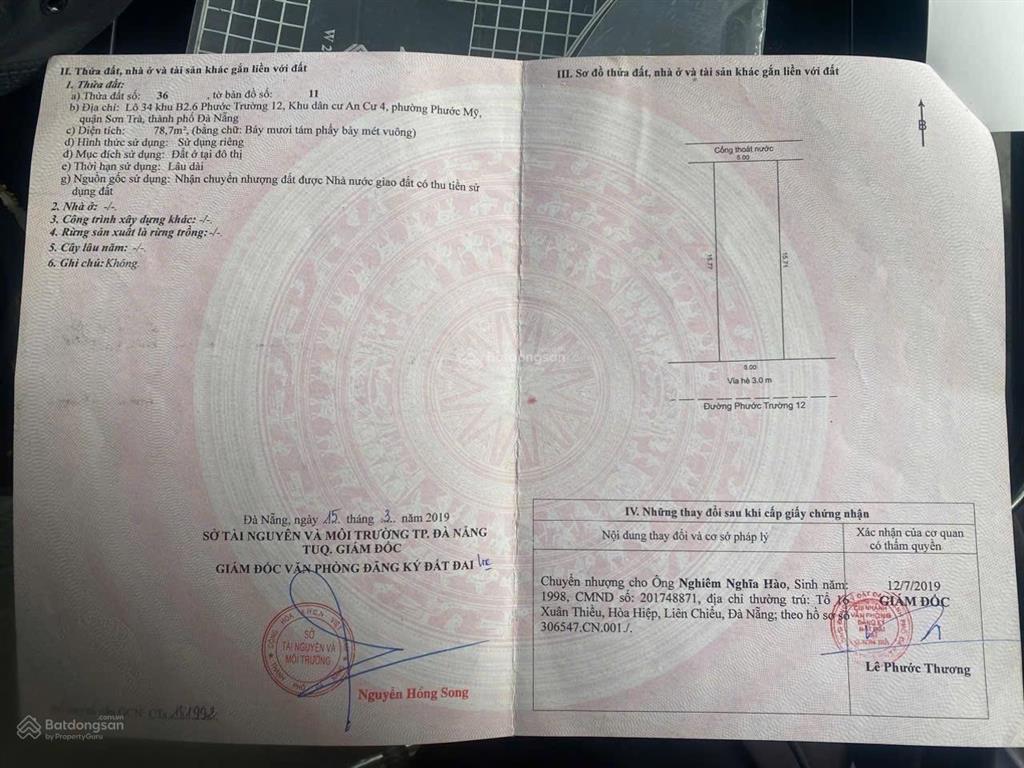 II. Thửa đất, nhà ở và tài sản khác gắn liền với đất
1. Thửa đất:
a) Thửa đất số: 36 , tờ bản đồ số: 11
b) Địa chỉ: Lô 34 khu B2.6 Phước Trường 12, Khu dân cư An Cư 4, phường Phước Mỹ,
quận Sơn Trà, thành phố Đà Nẵng
c) Diện tích: 78,7m², (bằng chữ: Bảy mươi tám phẩy bảy mét vuông)
d) Hình thức sử dụng: Sử dụng riêng
đ) Mục đích sử dụng: Đất ở tại đô thị
e) Thời hạn sử dụng: Lâu dài
g) Nguồn gốc sử dụng: Nhận chuyển nhượng đất được Nhà nước giao đất có thu tiền sử
dụng đất
2. Nhà ở: -/-.
3. Công trình xây dựng khác: -/-.
4. Rừng sản xuất là rừng trồng: -/-.
5. Cây lâu năm: -/-.
6. Ghi chú: Không.
Đà Nẵng, ngày 15 tháng 3 năm 2019
SỞ TÀI NGUYÊN VÀ MÔI TRƯỜNG TP. ĐÀ NẴNG
TUQ. GIÁM ĐỐC
GIÁM ĐỐC VĂN PHÒNG ĐĂNG KÝ ĐẤT ĐAI
SỞ
TÀI NGUYÊN VÀ
MÔI TRƯỜNG
Nguyễn Hồng Song
III. Sơ đồ thửa đất, nhà ở và tài sản khác gắn liền với đất
B
Cống thoát nước
5.00
15.77
15.71
5.00
Vỉa hè 3.0 m
Đường Phước Trường 12
IV. Những thay đổi sau khi cấp giấy chứng nhận
Nội dung thay đổi và cơ sở pháp lý
Xác nhận của cơ quan
có thẩm quyền
Chuyển nhượng cho Ông Nghiêm Nghĩa Hào, Sinh năm:
1998, CMND số: 201748871, địa chỉ thường trú: Tổ 16
Xuân Thiều, Hòa Hiệp, Liên Chiểu, Đà Nẵng; theo hồ sơ số
306547.CN.001./.
12/7/2019
GIÁM ĐỐC
Lê Phước Thương
Batdongsan
.com.vn
by PropertyGuru
Batdongsan